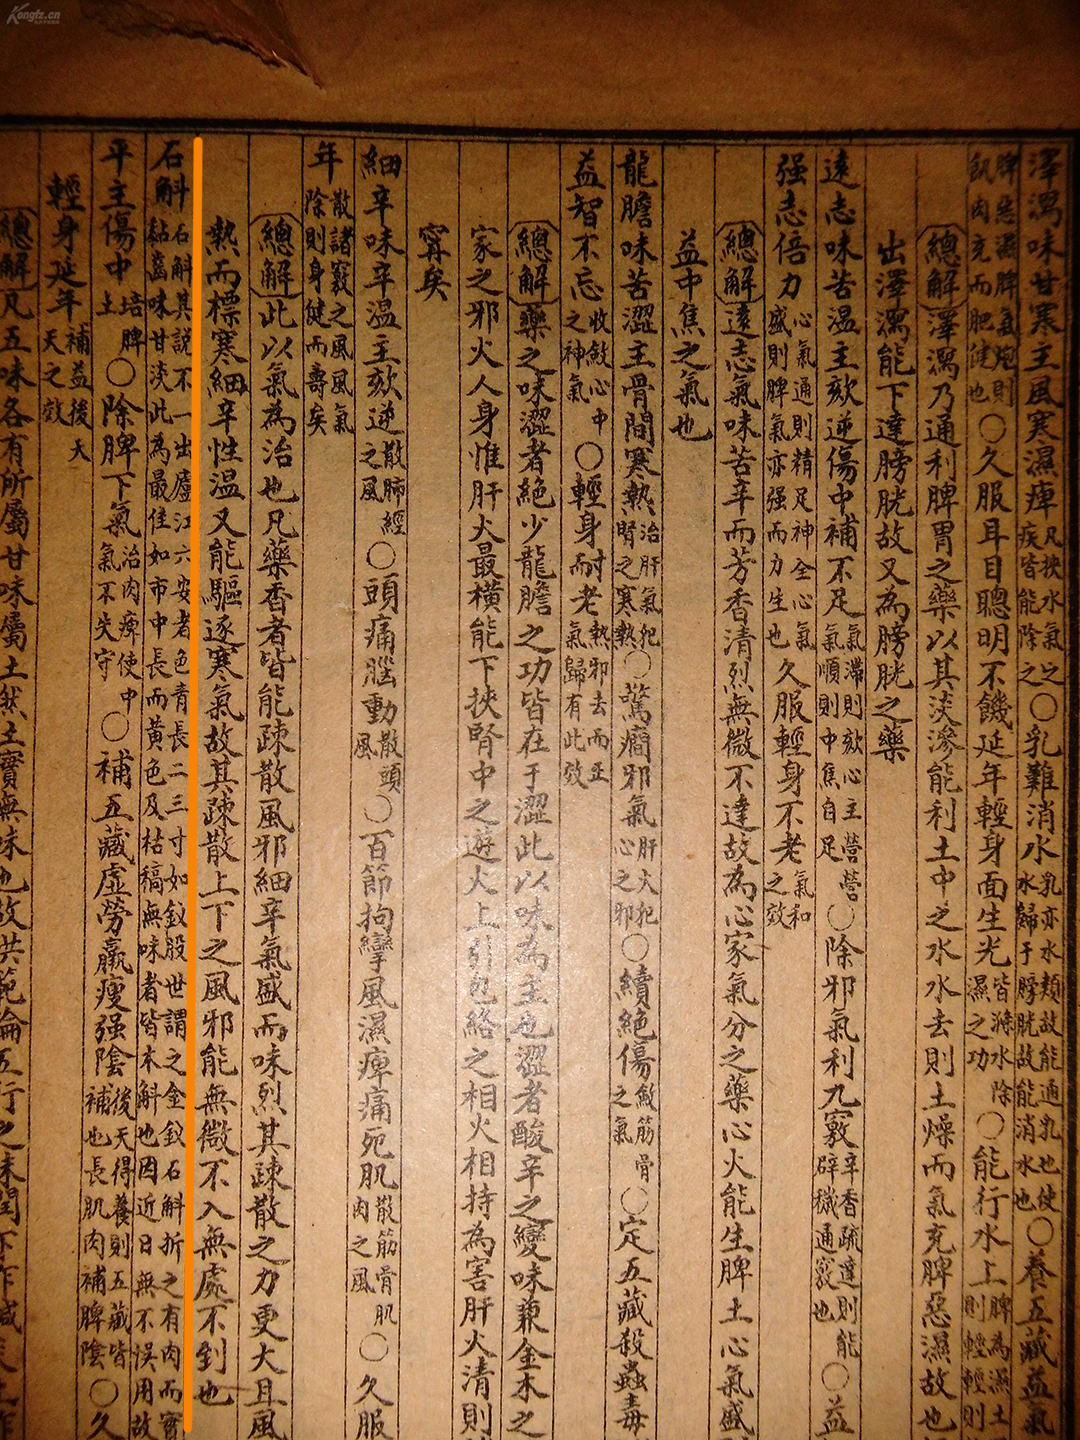 澤瀉味甘寒主風寒濕痺凡挾水氣之疾皆能除之〇乳難消水乳亦水類故能通乳也使水歸于膀胱故能消水也〇養五藏益氣
脾惡濕脾氣燥則飢肉充而肥健也〇久服耳目聰明不饑延年輕身面生光皆滌水除濕之功〇能行水上脾為濕土則輕輕則
總解澤瀉乃通利脾胃之藥以其淡滲能利土中之水水去則土燥而氣充脾惡濕故也
出澤瀉能下達膀胱故又為膀胱之藥
遠志味苦溫主欬逆傷中補不足氣滯則欬心主營營氣順則中焦自足〇除邪氣利九竅辛香疏達則能辟穢通竅也〇益
强志倍力心氣通則精足神全心氣盛則脾氣亦强而力生也久服輕身不老氣和之效
總解遠志氣味苦辛而芳香清烈無微不達故為心家氣分之藥心火能生脾土心氣盛
益中焦之氣也
龍膽味苦澀主骨間寒熱治肝氣犯腎之寒熱〇驚癇邪氣肝火犯心之邪〇續絶傷斂筋骨之氣〇定五藏殺蟲毒
益智不忘收斂心中之神氣〇輕身耐老熱邪去而正氣歸有此效
總解藥之味澀者絶少龍膽之功皆在于澀此以味為主也澀者酸辛之變味兼金木之
家之邪火人身惟肝火最横能下挾腎中之遊火上引包絡之相火相持為害肝火清則
寗矣
細辛味辛溫主欬逆散肺經之風〇頭痛腦動散頭風〇百節拘攣風濕痺痛死肌散筋骨肌肉之風〇久服
年散諸竅之風風氣除則身健而壽矣
總解此以氣為治也凡藥香者皆能疎散風邪細辛氣盛而味烈其疎散之力更大且風
熱而標寒細辛性溫又能驅逐寒氣故其疎散上下之風邪能無微不入無處不到也
石斛石斛其說不一出廬江六安者色青長二三寸如釵股世謂之金釵石斛折之有肉而實黏齒味甘淡此為最佳如市中長而黃色及枯稿無味者皆木斛也因近日無不誤用故
平主傷中培脾土〇除脾下氣治肉痺使中氣不失守〇補五藏虛勞羸瘦强陰後天得養則五藏皆補也長肌肉補脾陰〇久
輕身延年補益後天天之效
總解凡五味各有所屬甘味屬土然土實無味也故洪範論五行之味潤下作鹹